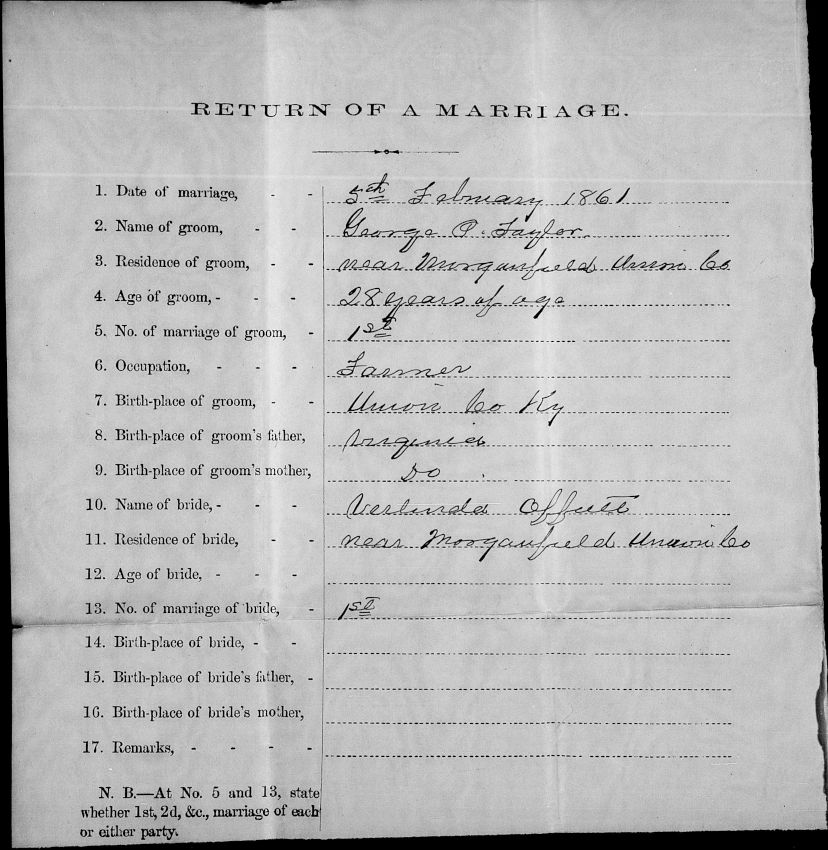 RETURN OF A MARRIAGE.
1. Date of marriage, - - 5th February 1861
2. Name of groom, - - George P. Taylor
3. Residence of groom, - - near Morganfield Union Co
4. Age of groom, - - - 28 years of age
5. No. of marriage of groom, - 1st
6. Occupation, - - - Farmer
7. Birth-place of groom, - - Union Co Ky
8. Birth-place of groom's father, Virginia
9. Birth-place of groom's mother, Do
10. Name of bride, - - - Verlinda Offutt
11. Residence of bride, - - near Morganfield Union Co
12. Age of bride, - - -
13. No. of marriage of bride, - 1st
14. Birth-place of bride, - -
15. Birth-place of bride's father, -
16. Birth-place of bride's mother,
17. Remarks, - - - -
N. B.—At No. 5 and 13, state
whether 1st, 2d, &c., marriage of each
or either party.